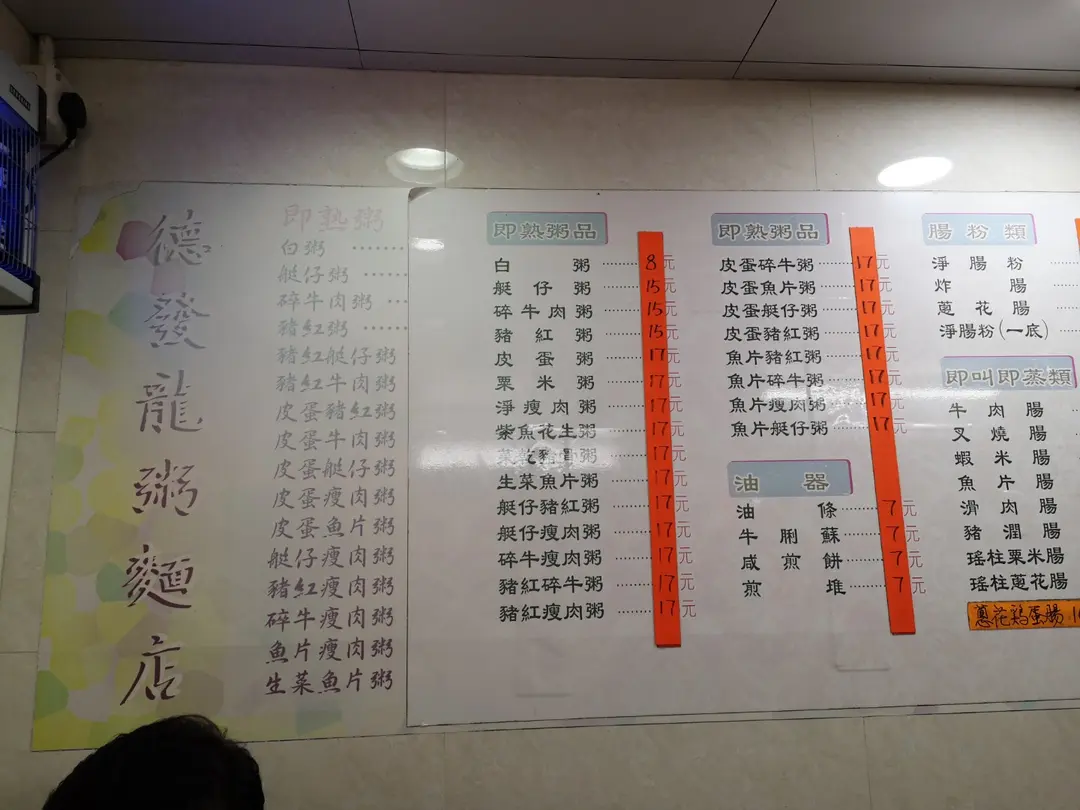 德發龍粥麵店
即熟粥
白粥
艇仔粥
碎牛肉粥
豬紅粥
豬紅艇仔粥
豬紅牛肉粥
皮蛋豬紅粥
皮蛋牛肉粥
皮蛋艇仔粥
皮蛋瘦肉粥
皮蛋魚片粥
艇仔瘦肉粥
豬紅瘦肉粥
碎牛瘦肉粥
魚片瘦肉粥
生菜魚片粥
即熟粥品
白粥 8元
艇仔粥 15元
碎牛肉粥 15元
豬紅粥 15元
皮蛋粥 17元
粟米粥 17元
淨瘦肉粥 17元
柴魚花生粥 17元
菜乾豬骨粥 17元
生菜魚片粥 17元
艇仔豬紅粥 17元
艇仔瘦肉粥 17元
碎牛瘦肉粥 17元
豬紅碎牛粥 17元
豬紅瘦肉粥 17元
即熟粥品
皮蛋碎牛粥 17元
皮蛋魚片粥 17元
皮蛋艇仔粥 17元
皮蛋豬紅粥 17元
魚片豬紅粥 17元
魚片碎牛粥 17元
魚片瘦肉粥 17元
魚片艇仔粥 17元
油器
油條 7元
牛脷蘇 7元
咸煎餅 7元
煎堆 7元
腸粉類
淨腸粉
炸腸
蔥花腸
淨腸粉(一底)
即叫即蒸類
牛肉腸
叉燒腸
蝦米腸
魚片腸
滑肉腸
豬潤腸
瑤柱粟米腸
瑤柱蔥花腸
蔥花鷄蛋腸